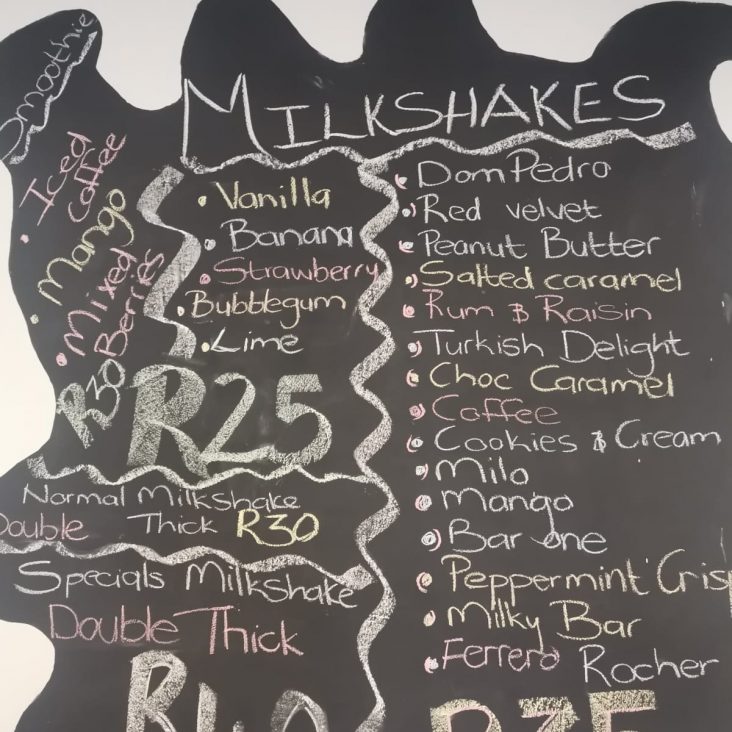 Smoothie
• Iced
Coffee
• Mango
• Mixed
Berries
R30
MILKSHAKES
• Vanilla
• Banana
• Strawberry
• Bubblegum
• Lime
R25
Normal Milkshake
Double Thick R30
Specials Milkshake
Double Thick
R40
• Dom Pedro
• Red velvet
• Peanut Butter
• Salted caramel
• Rum & Raisin
• Turkish Delight
• Choc Caramel
• Coffee
• Cookies & Cream
• Milo
• Mango
• Bar one
• Peppermint Crisp
• Milky Bar
• Ferrero Rocher
R35